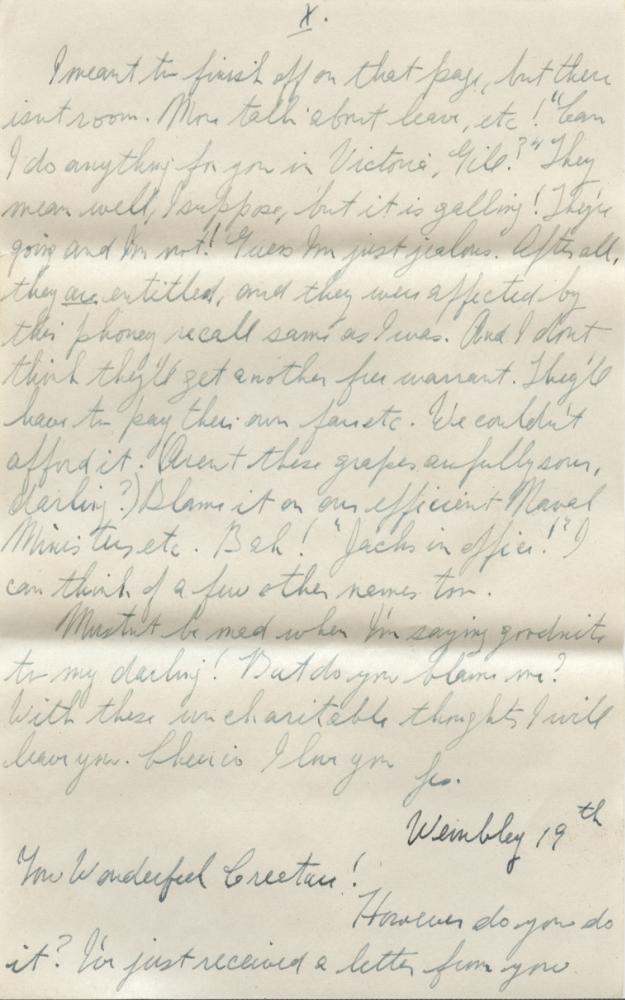 X.
I meant to finish off on that page, but there
isnt room. More talk about leave, etc! "Can
I do anything for you in Victoria, Gile?" They
mean well, I suppose, but it is galling! They're
going and I'm not! Guess I'm just jealous. After all,
they are entitled, and they were affected by
this phoney recall same as I was. And I don't
think they'll get another free warrant. They'll
have to pay their own fare etc. We couldn't
afford it. (Aren't these grapes awfully sour,
darling?) Blame it on our efficient Naval
Ministers etc. Bah! "Jacks in office!" I
can think of a few other names too.
Mustnt be mad when I'm saying goodnite
to my darling! But do you blame me?
With these uncharitable thoughts I will
leave you. Cheerio I love you
Wembley 19th
You Wonderful Creature!
However do you do
it? I've just received a letter from you